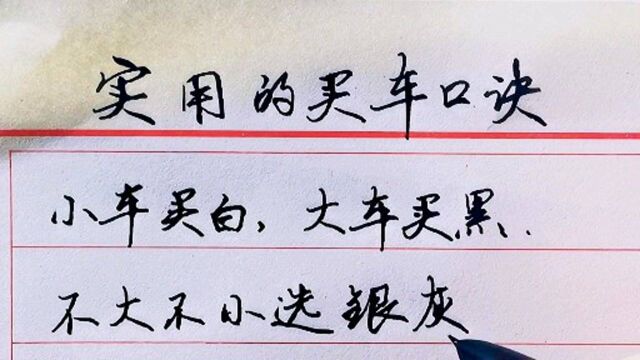 实用的买车口诀
小车买白，大车买黑.
不大不小选银灰